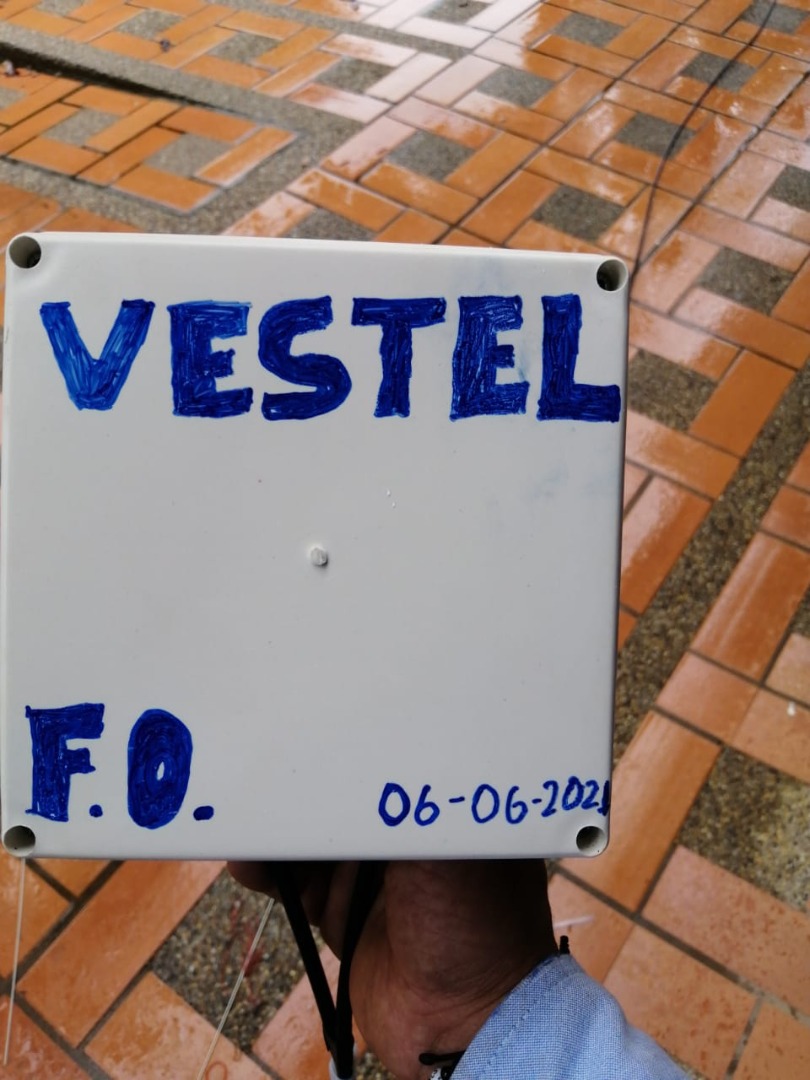 VESTEL
F.O.
06-06-2021